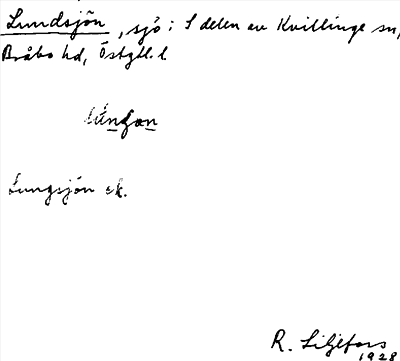 Lundsjön, sjö i S delen av Kvillinge sn,
Bråbo hd, Östgtl. l
Lungsjön ek.
R. Liljefors
1928